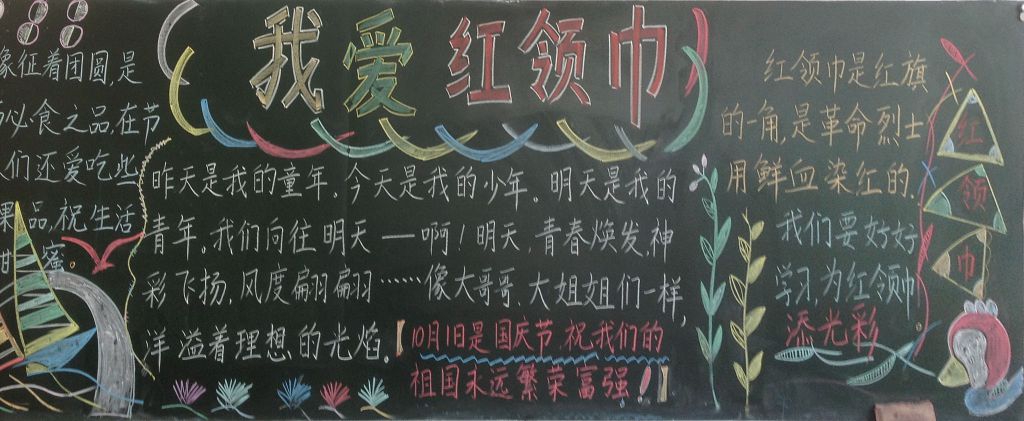 象征着团圆,是
必食之品,在节
人们还爱吃些
果品,祝生活
甘 蜜。
我爱红领巾
昨天是我的童年。今天是我的少年。明天是我的
青年。我们向往明天——啊!明天,青春焕发,神
彩飞扬,风度翩翩……像大哥哥,大姐姐们一样,
洋溢着理想的光焰。
10月1日是国庆节,祝我们的
祖国永远繁荣富强!!
红领巾是红旗
的一角,是革命烈士
用鲜血染红的.
我们要好好
学习,为红领巾
添光彩
红
领
巾